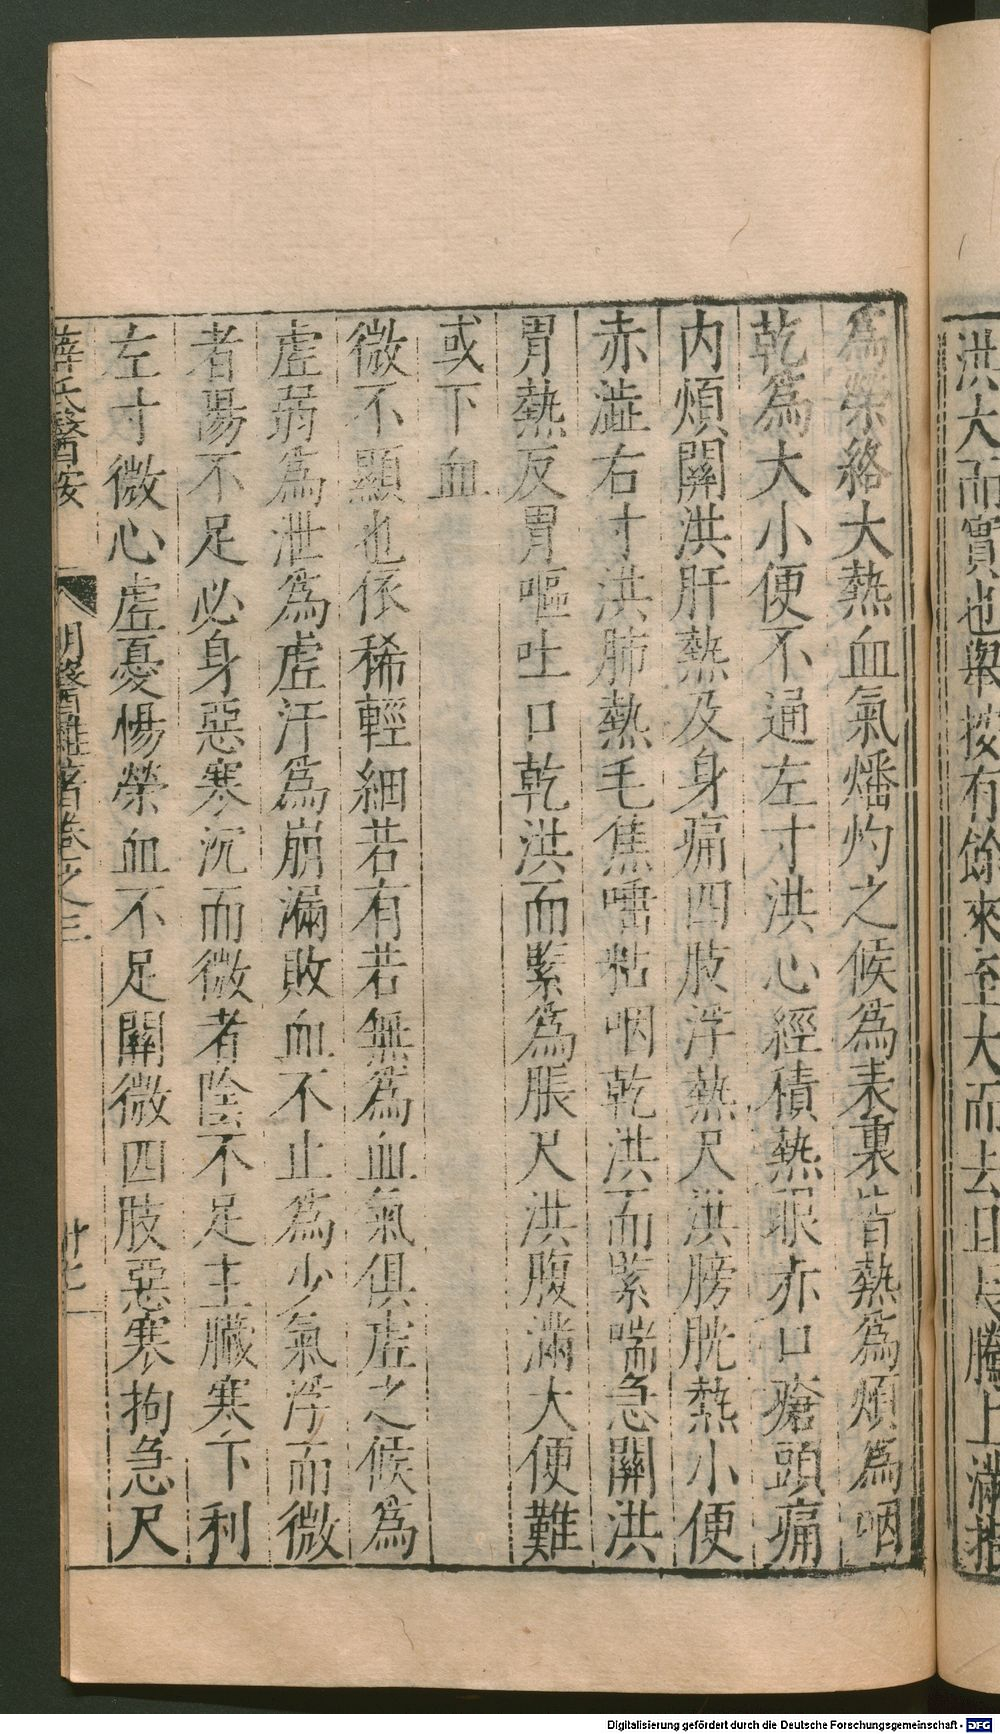 洪大而實也舉按有餘來至大而去且長騰上滿指
為榮絡大熱血氣燔灼之候為表裏皆熱為煩為咽
乾為大小便不通左寸洪心經積熱眼赤口瘡頭痛
内煩關洪肝熱及身痛四肢浮熱尺洪膀胱熱小便
赤澁右寸洪肺熱毛焦唾粘咽乾洪而緊喘急關洪
胃熱反胃嘔吐口乾洪而緊為脹尺洪腹滿大便難
或下血
微不顯也依稀輕細若有若無為血氣俱虛之候為
虛弱為泄為虛汗為崩漏敗血不止為少氣浮而微
者陽不足必身惡寒沉而微者陰不足主臟寒下利
左寸微心虛憂惕榮血不足關微四肢惡寒拘急尺
薛氏醫按 明醫雜著卷之三 廿七
Digitalisierung gefördert durch die Deutsche Forschungsgemeinschaft - DFG